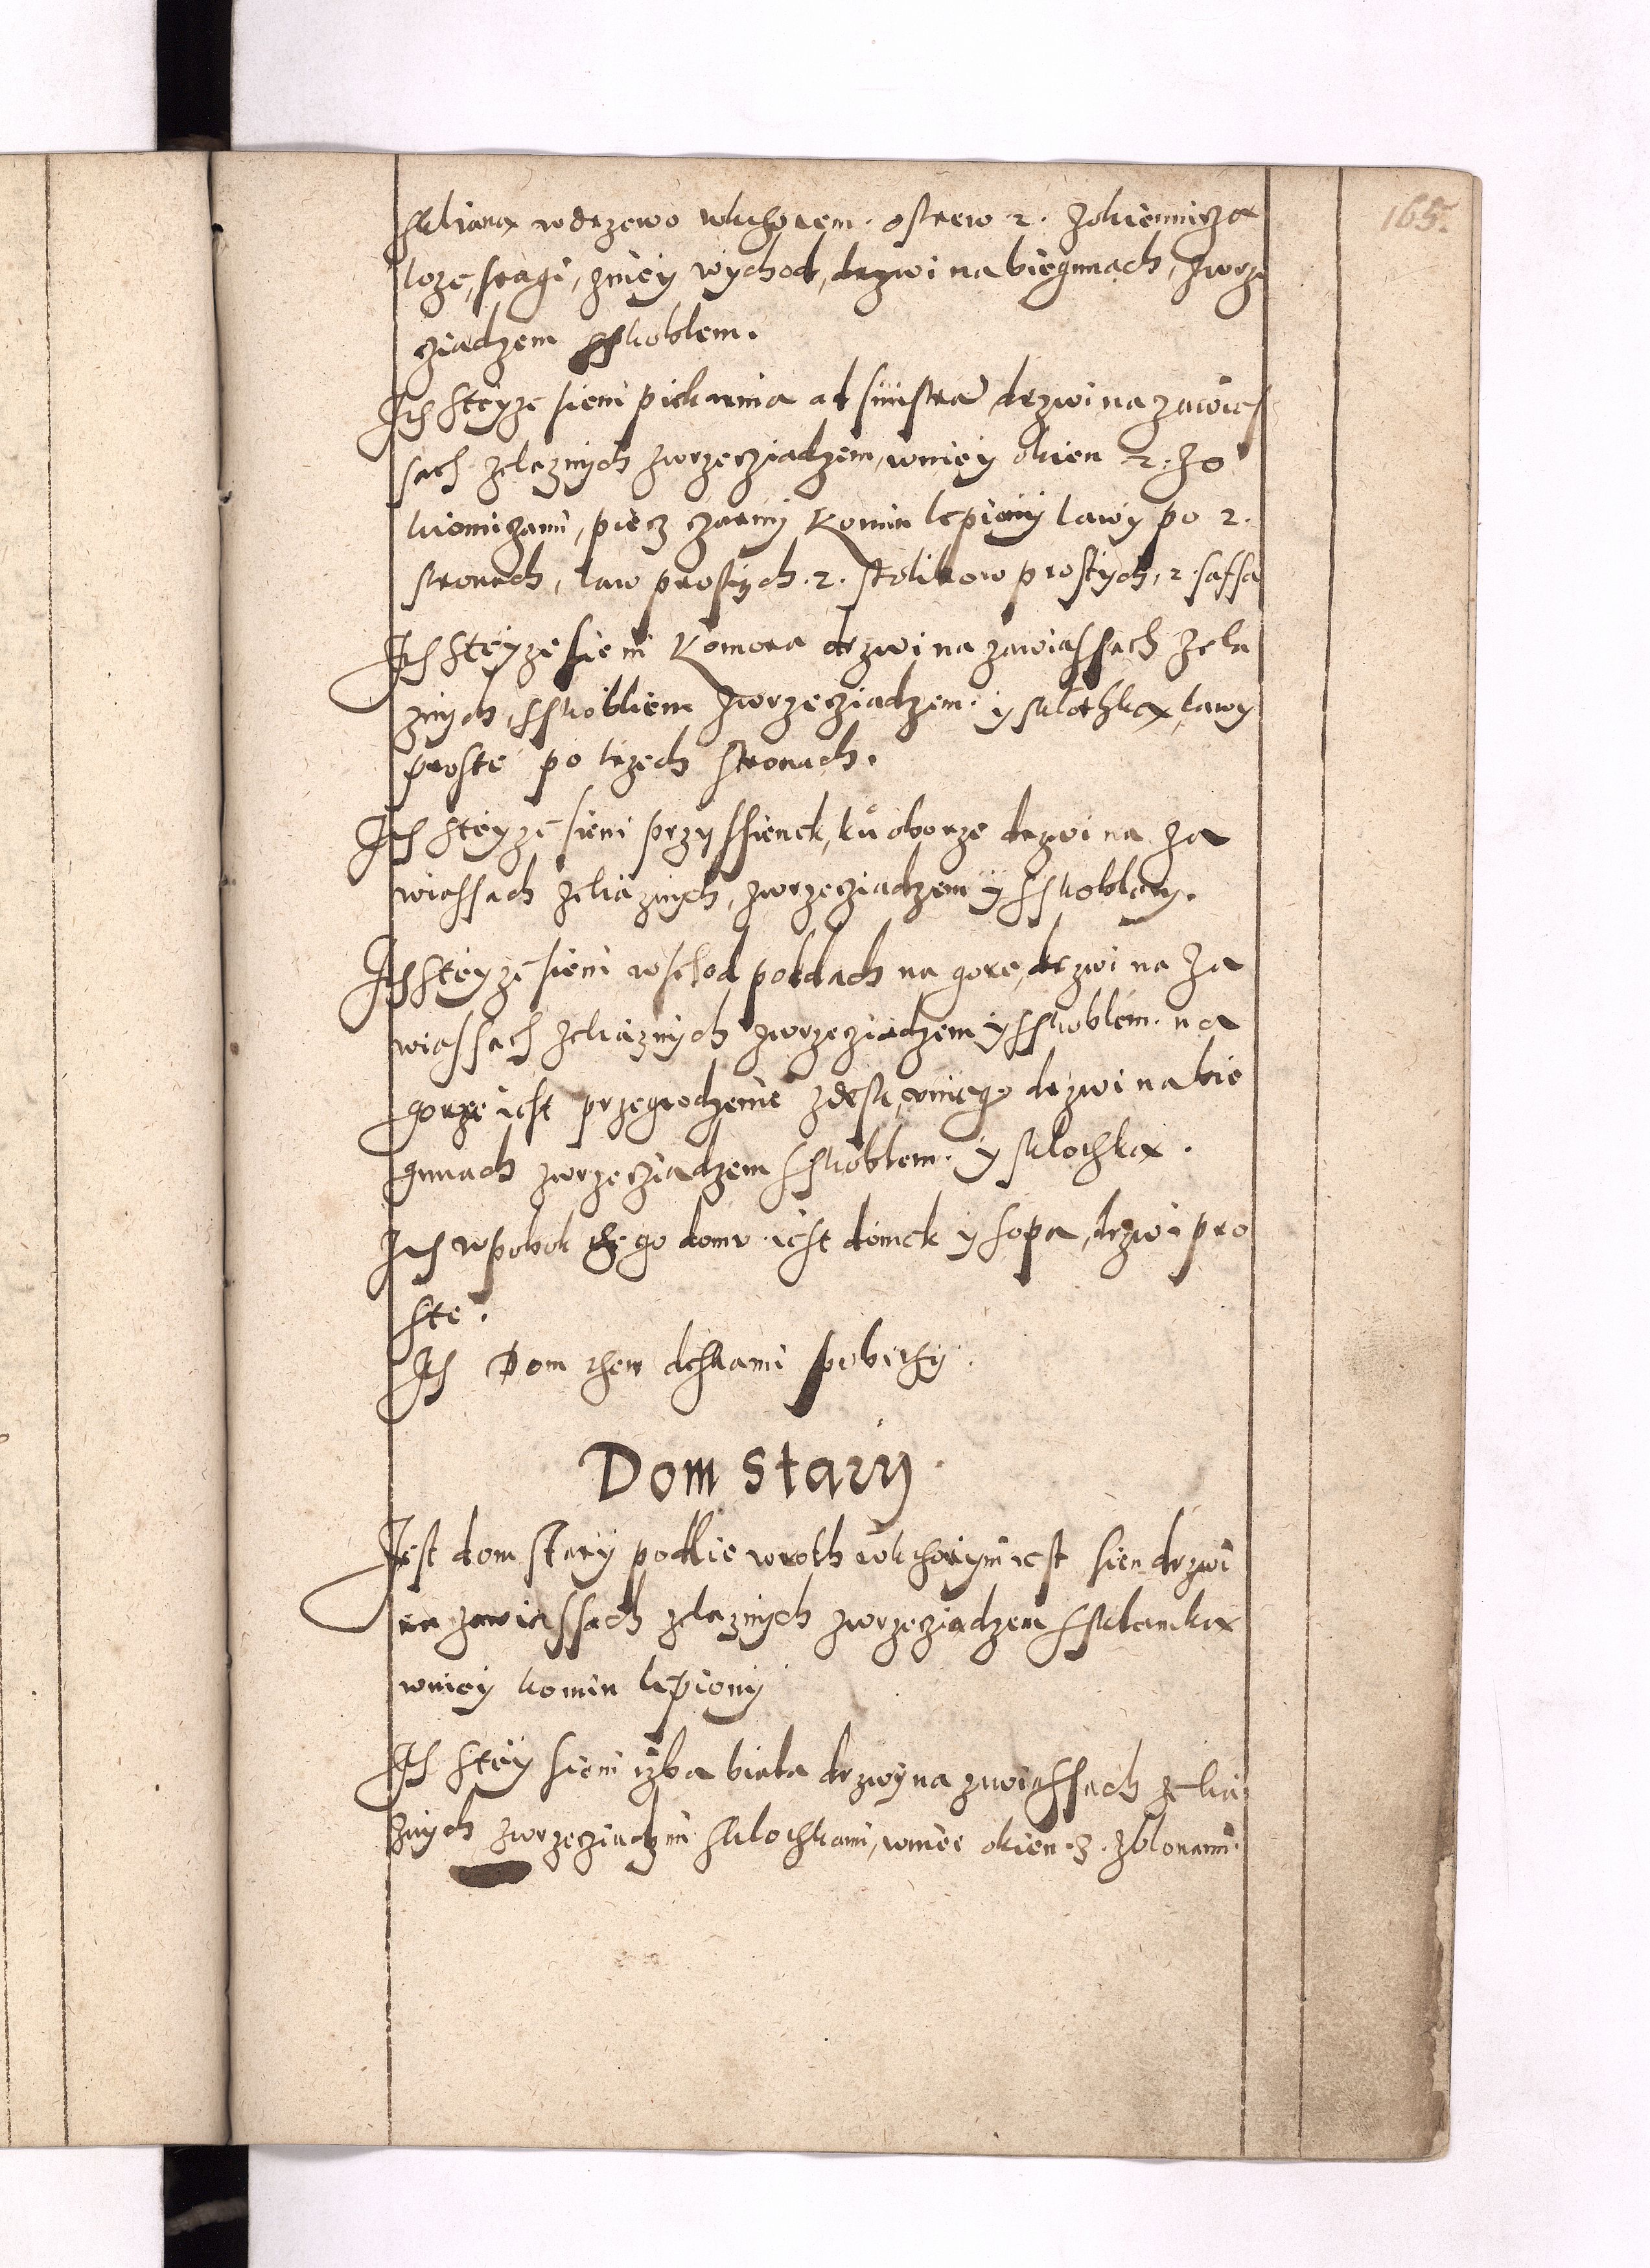 165.
skliana w drzewo wkchorem. ostrew 2. Zokiennicza
loze, stagi, zniey wychod, drzwi na biegunach, zwrze
cziadzem sskoblem.
Ith steyze sieni piekarnia ad sinistra drzwi na zawies
sach zelaznych zwrzecziadzem, wniey okien 2. zo
kiennicami, piecz czarny Komin lepiony lawy po 2.
stronach, law prostych. 2. stolikow prostych. 2. saffa
Ith steyze sieni Komora drzwi na zawiassach zela
znych, sskoblem zwrzecziadzem. y sklothka, lawy
proste po trzech stronach.
Ith steyze sieni przyssienek, ku oborze drzwi na za
wiassach zeliaznych, zwrzecziadzem y sskoblem.
Ith steyze sieni wschod poddach na gore, drzwi na za
wiassach zeliaznych zwrzecziadzem y sskoblem. na
gorze iest przegrodzenie zdesk, vniego drzwi na bie
gunach zwrzecziadzem sskoblem. y sklothka.
Ith wpobok tego domv iest domek y sopa, drzwi pro
ste.
Ith Dom then dskami pobithy.
Dom stary
Jest dom stary podlie wroth wkthorym iest sien drzwi
na zawiassach zelaznych zwrzecziadzem sklamka
wniey komin lepiony
Ith stey sieni izba biala drzwy na zawiassach zelia
znych zwrzecziadzm sklothkami, wniee okien. 3. zblonami.